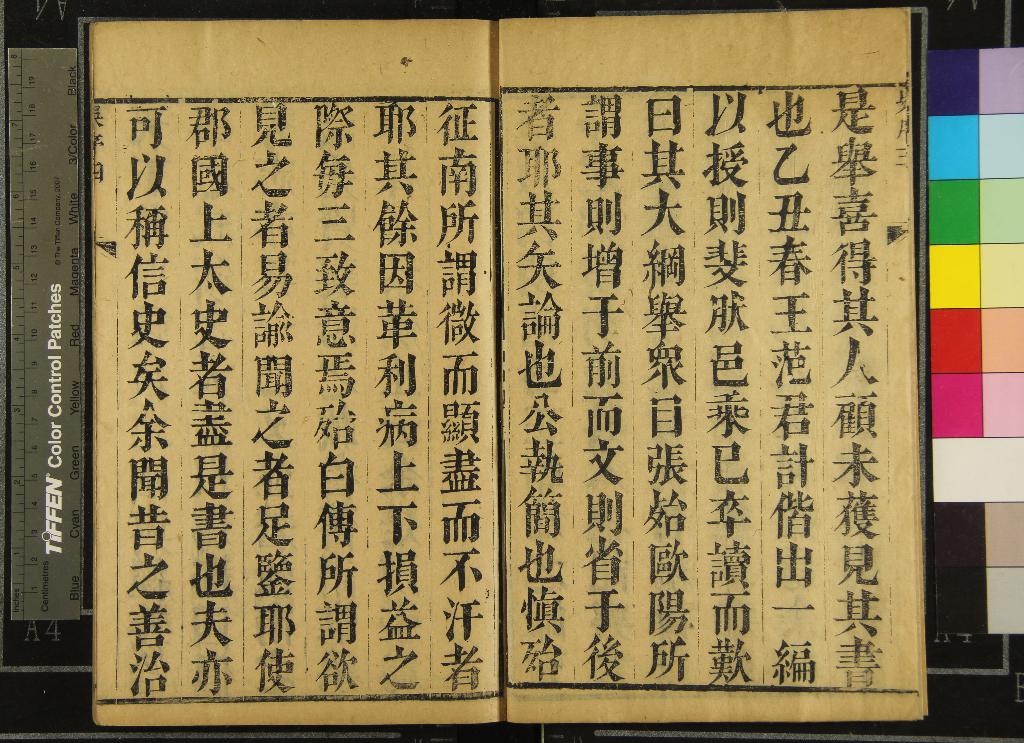 是舉喜得其人顧未獲見其書
也乙丑春王范君計偕出一編
以授則斐肰邑乘已卒讀而歎
曰其大綱舉衆目張始歐陽所
謂事則增于前而文則省于後
者耶其矢論也公執簡也愼殆
征南所謂微而顯盡而不汙者
耶其餘因革利病上下損益之
際每三致意焉殆白傳所謂欲
見之者易諭聞之者足鑒耶使
郡國上太史者盡是書也夫亦
可以稱信史矣余聞昔之善治
Inches
Centimetres
TIFFEN Color Control Patches
© The Tiffen Company, 2007
Blue Cyan Green Yellow Red Magenta White 3/Color Black
A4